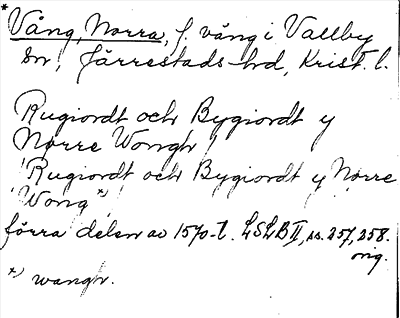 * Vång, Norra, f. vång i Vallby
sn, Järrestads hd, Krist. l.
Rugiordt och Bygiordt y
Norre Wongh
'Rugiordt och Bygiordt y Norre
Wong *)'
förra delen av 1570-t. LSLB II, ss. 257, 258.
orig.
*) wangh.